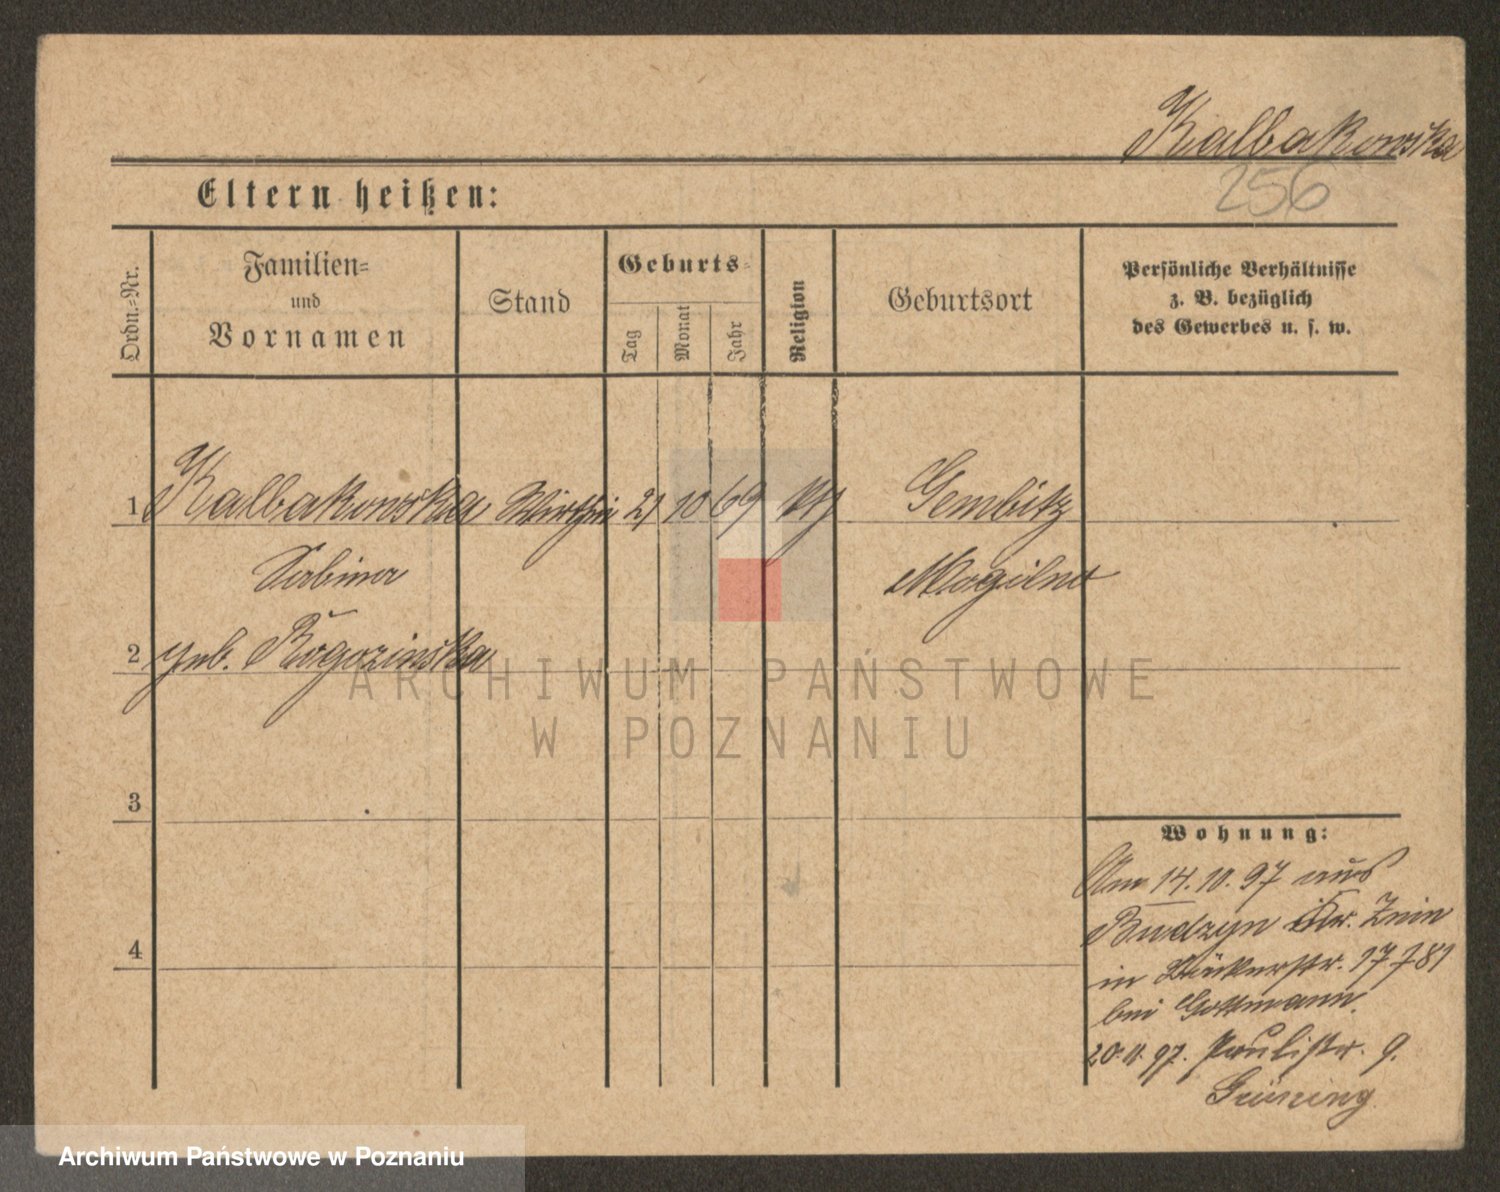 Kalbakowska
256
Eltern heißen:
Ordn.-Nr.
Familien-
und
Vornamen
Stand
Geburts-
Tag
Monat
Jahr
Religion
Geburtsort
Persönliche Verhältnisse
z. B. bezüglich
des Gewerbes u. s. w.
1 Kalbakowska Wirthin 21 10 69 Gembitz
Sabina Mogilno
2 geb. Rogozinska
3
4
Wohnung:
Am 14.10.97 aus
Budzyn Kr. Znin
in Bäckerstr. 17
bei Gottmann.
20.11.97. Paulistr. 9.
Grüning
ARCHIWUM PAŃSTWOWE
W POZNANIU
Archiwum Państwowe w Poznaniu